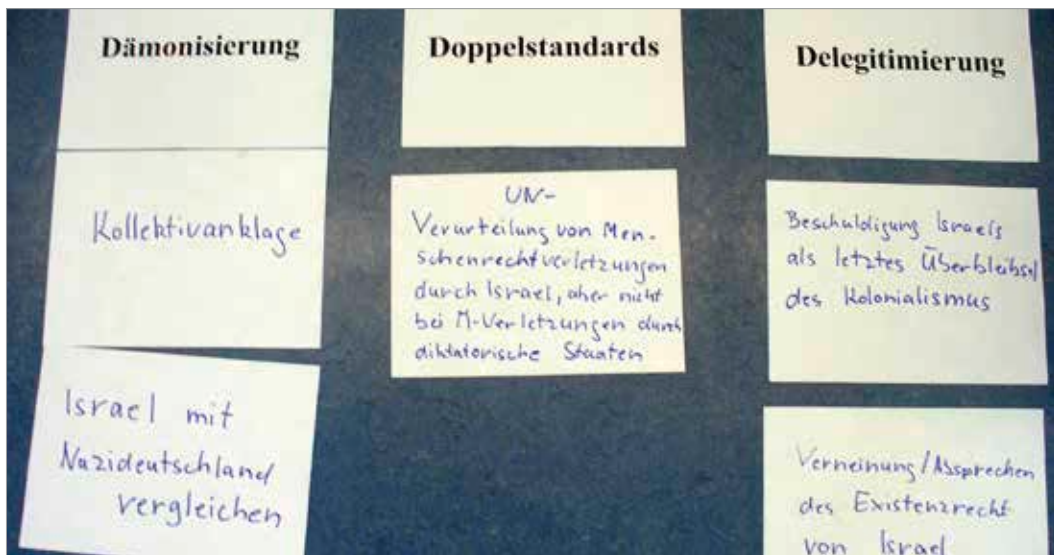 Dämonisierung
Kollektivanklage
Israel mit
Nazideutschland
vergleichen
Doppelstandards
UN-
Verurteilung von Men-
schenrechtverletzungen
durch Israel, aber nicht
bei M-Verletzungen durch
diktatorische Staaten
Delegitimierung
Beschuldigung Israels
als letztes Überbleibsel
des Kolonialismus
Verneinung/Assprechen
des Existenzrecht
von Israel